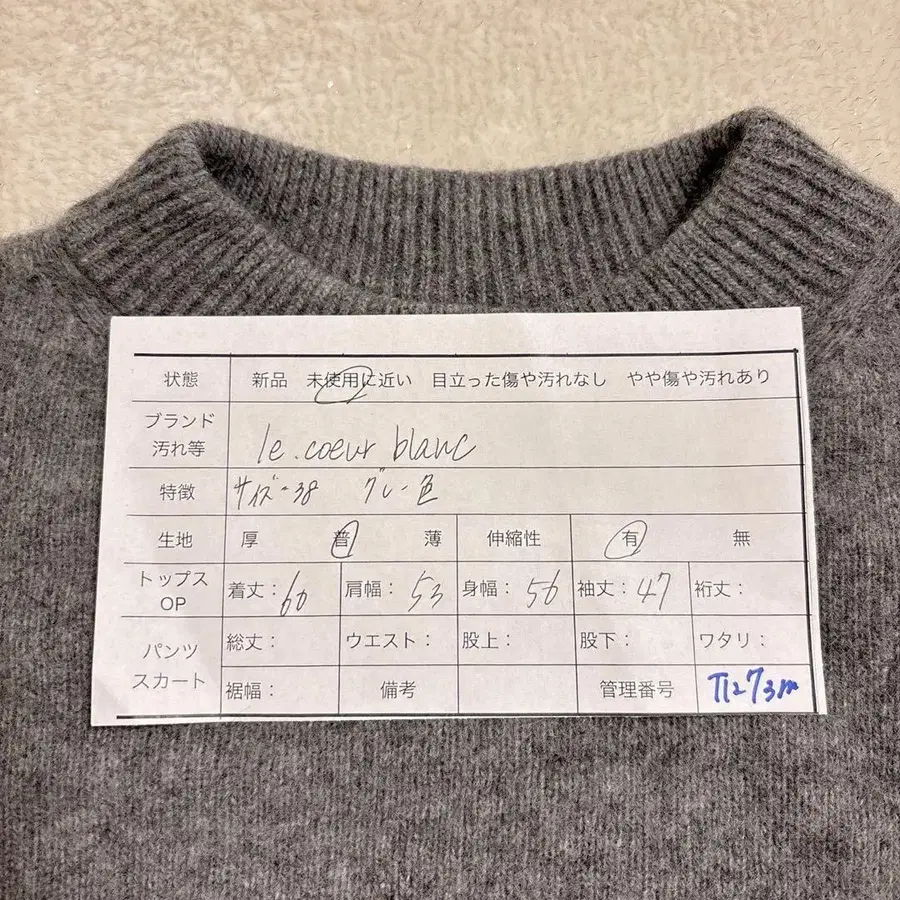 状態 新品 未使用に近い 目立った傷や汚れなし やや傷や汚れあり
ブランド
汚れ等 le.coeur blanc
特徴 サイズ-38 グレー色
生地 厚 普 薄 伸縮性 有 無
トップス
OP 着丈: 60 肩幅: 53 身幅: 56 袖丈: 47 裄丈:
パンツ
スカート 総丈: ウエスト: 股上: 股下: ワタリ:
裾幅: 備考 管理番号